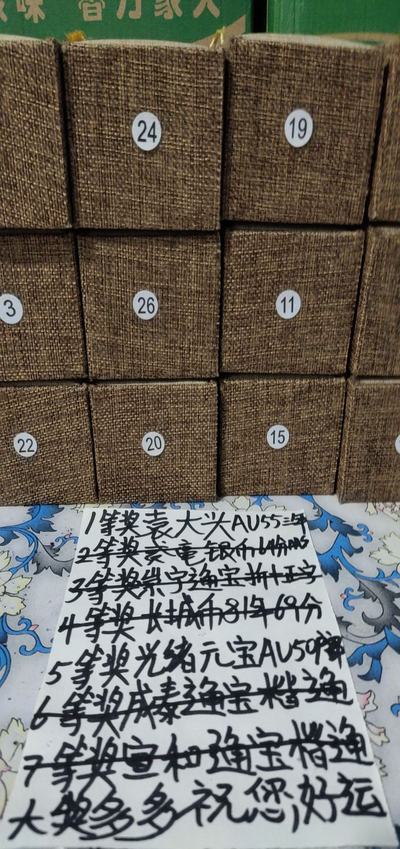 味 智力家人
24
19
3
26
11
22
20
15
1等奖袁大头AU55三年
2等奖 银币69分
3等奖崇宁通宝折十五字
4等奖长城币81年69分
5等奖光绪元宝AU50
6等奖咸泰通宝楷通
7等奖宣和通宝楷通
大奖多多祝您好运